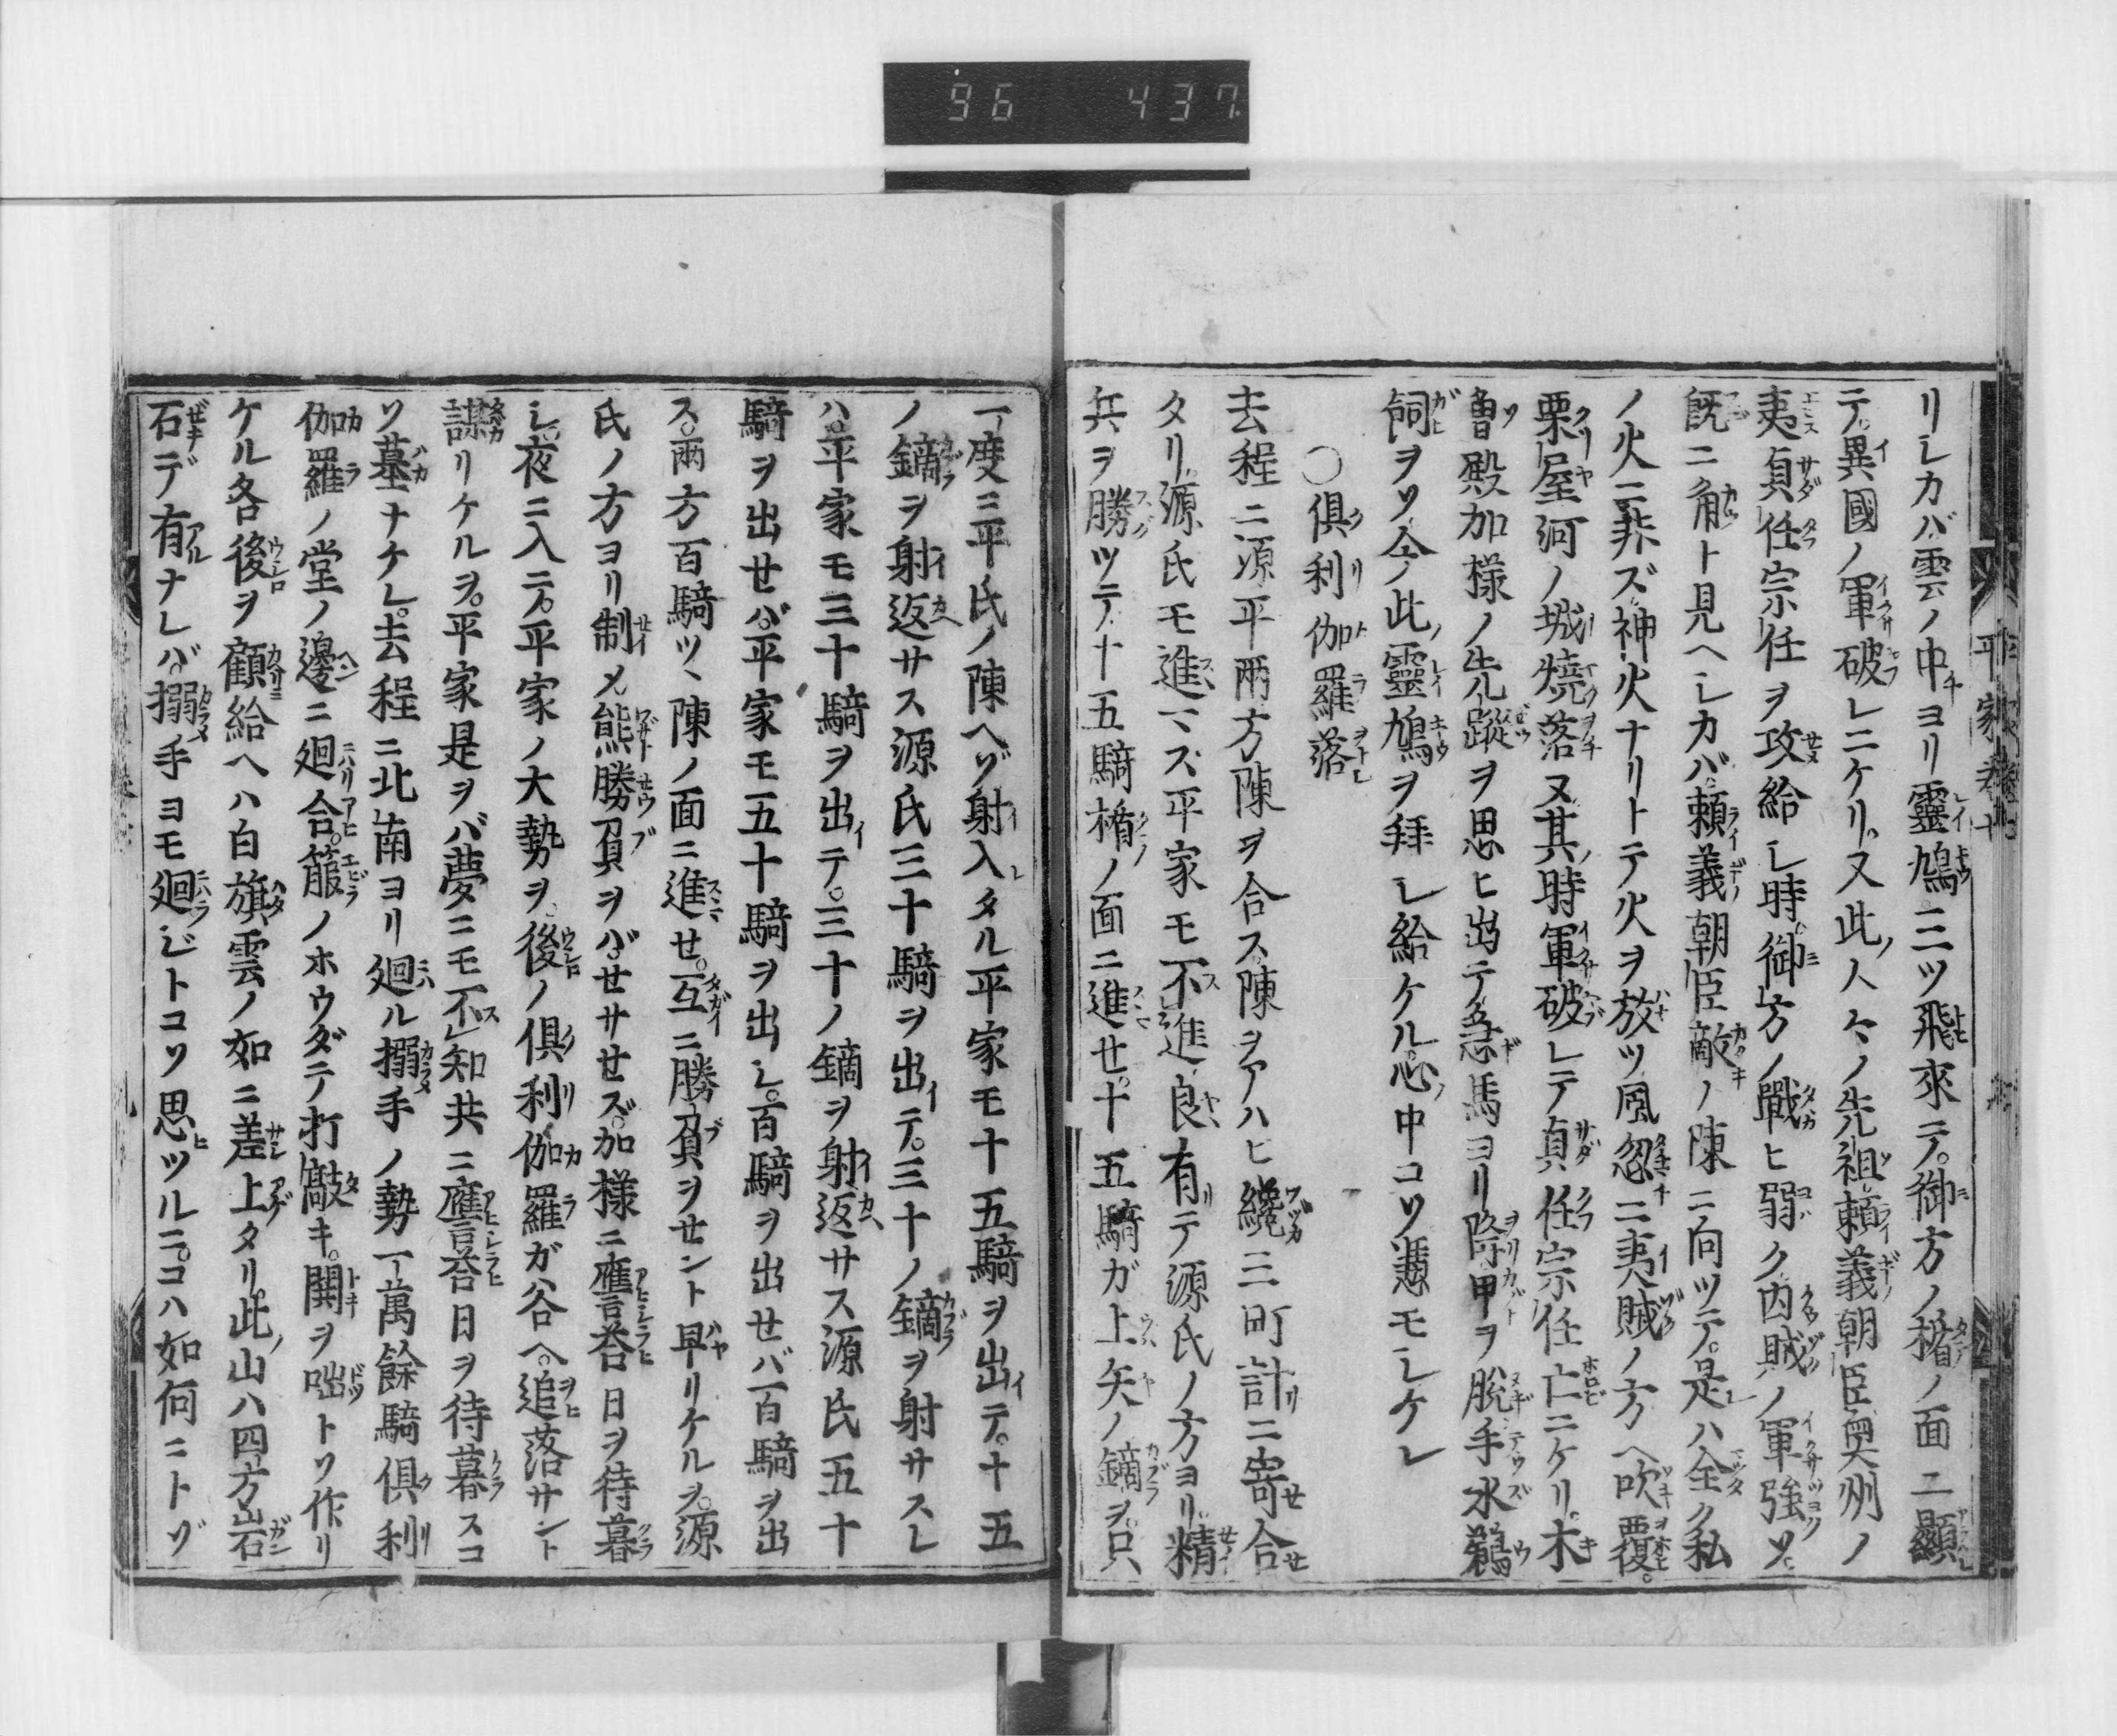 96 437
平家巻七
リシカバ雲ノ中ヨリ靈鳩三ツ飛來テ。御方ノ楯ノ面ニ顯
テ。異國ノ軍破レニケリ。又此人々ノ先祖頼義朝臣奥州ノ
夷貞任宗任ヲ攻給シ時御方ノ戰ヒ弱ク凶賊ノ軍強ツ。
既ニ角ト見ヘシカバ。頼義朝臣敵ノ陳ニ向ツテ。是ハ全ク私
ノ火ニ非ズ。神火ナリトテ火ヲ放ツ風忽ニ夷賊ノ方ヘ吹覆。
栗屋河ノ城燒落ヌ其時軍破レテ貞任宗任亡ニケリ。木
曽殿加樣ノ先蹤ヲ思ヒ出テ急馬ヨリ降甲ヲ脱手水鵜
飼ヲソ今ノ此靈鳩ヲ拜シ給ケル心中コソ憑モシケレ
○倶利伽羅落
去程ニ源平兩方陳ヲ合ス陳ヲアハヒ纔三町計ニ寄合セ
タリ。源氏モ進マズ平家モ不進良有テ源氏ノ方ヨリ。精
兵ヲ勝ツテ。十五騎楯ノ面ニ進セ。十五騎ガ上矢ノ鏑ヲ只
一度ニ平氏ノ陳ヘゾ射入タル平家モ十五騎ヲ出テ。十五
ノ鏑ヲ射返サス源氏三十騎ヲ出テ。三十ノ鏑ヲ射サスレ
ハ。平家モ三十騎ヲ出テ。三十ノ鏑ヲ射返サス源氏五十
騎ヲ出セバ。平家モ五十騎ヲ出シ。百騎ヲ出セバ百騎ヲ出
ス。兩方百騎ツヽ陳ノ面ニ進セ。互ニ勝負ヲセント早リケルヲ。源
氏ノ方ヨリ制メ。熊勝負ヲバセサセズ。加樣ニ應荅日ヲ待暮
シ。夜ニ入テ。平家ノ大勢ヲ。後ノ倶利伽羅ガ谷ヘ。追落サント
謀リケルヲ。平家是ヲバ夢ニモ不知共ニ應荅日ヲ待暮スコ
ソ墓ナケレ。去程ニ北南ヨリ廻ル搦手ノ勢一萬餘騎倶利
伽羅ノ堂ノ邊ニ廻合。箙ノホウダテ打敲キ。閧ヲ咄トソ作リ
ケル各後ヲ顧給ヘハ白旗雲ノ如ニ差上タリ。此山ハ四方岩
石デ有ナレバ。搦手ヨモ廻ジトコソ思ツルニ。コハ如何ニトゾ